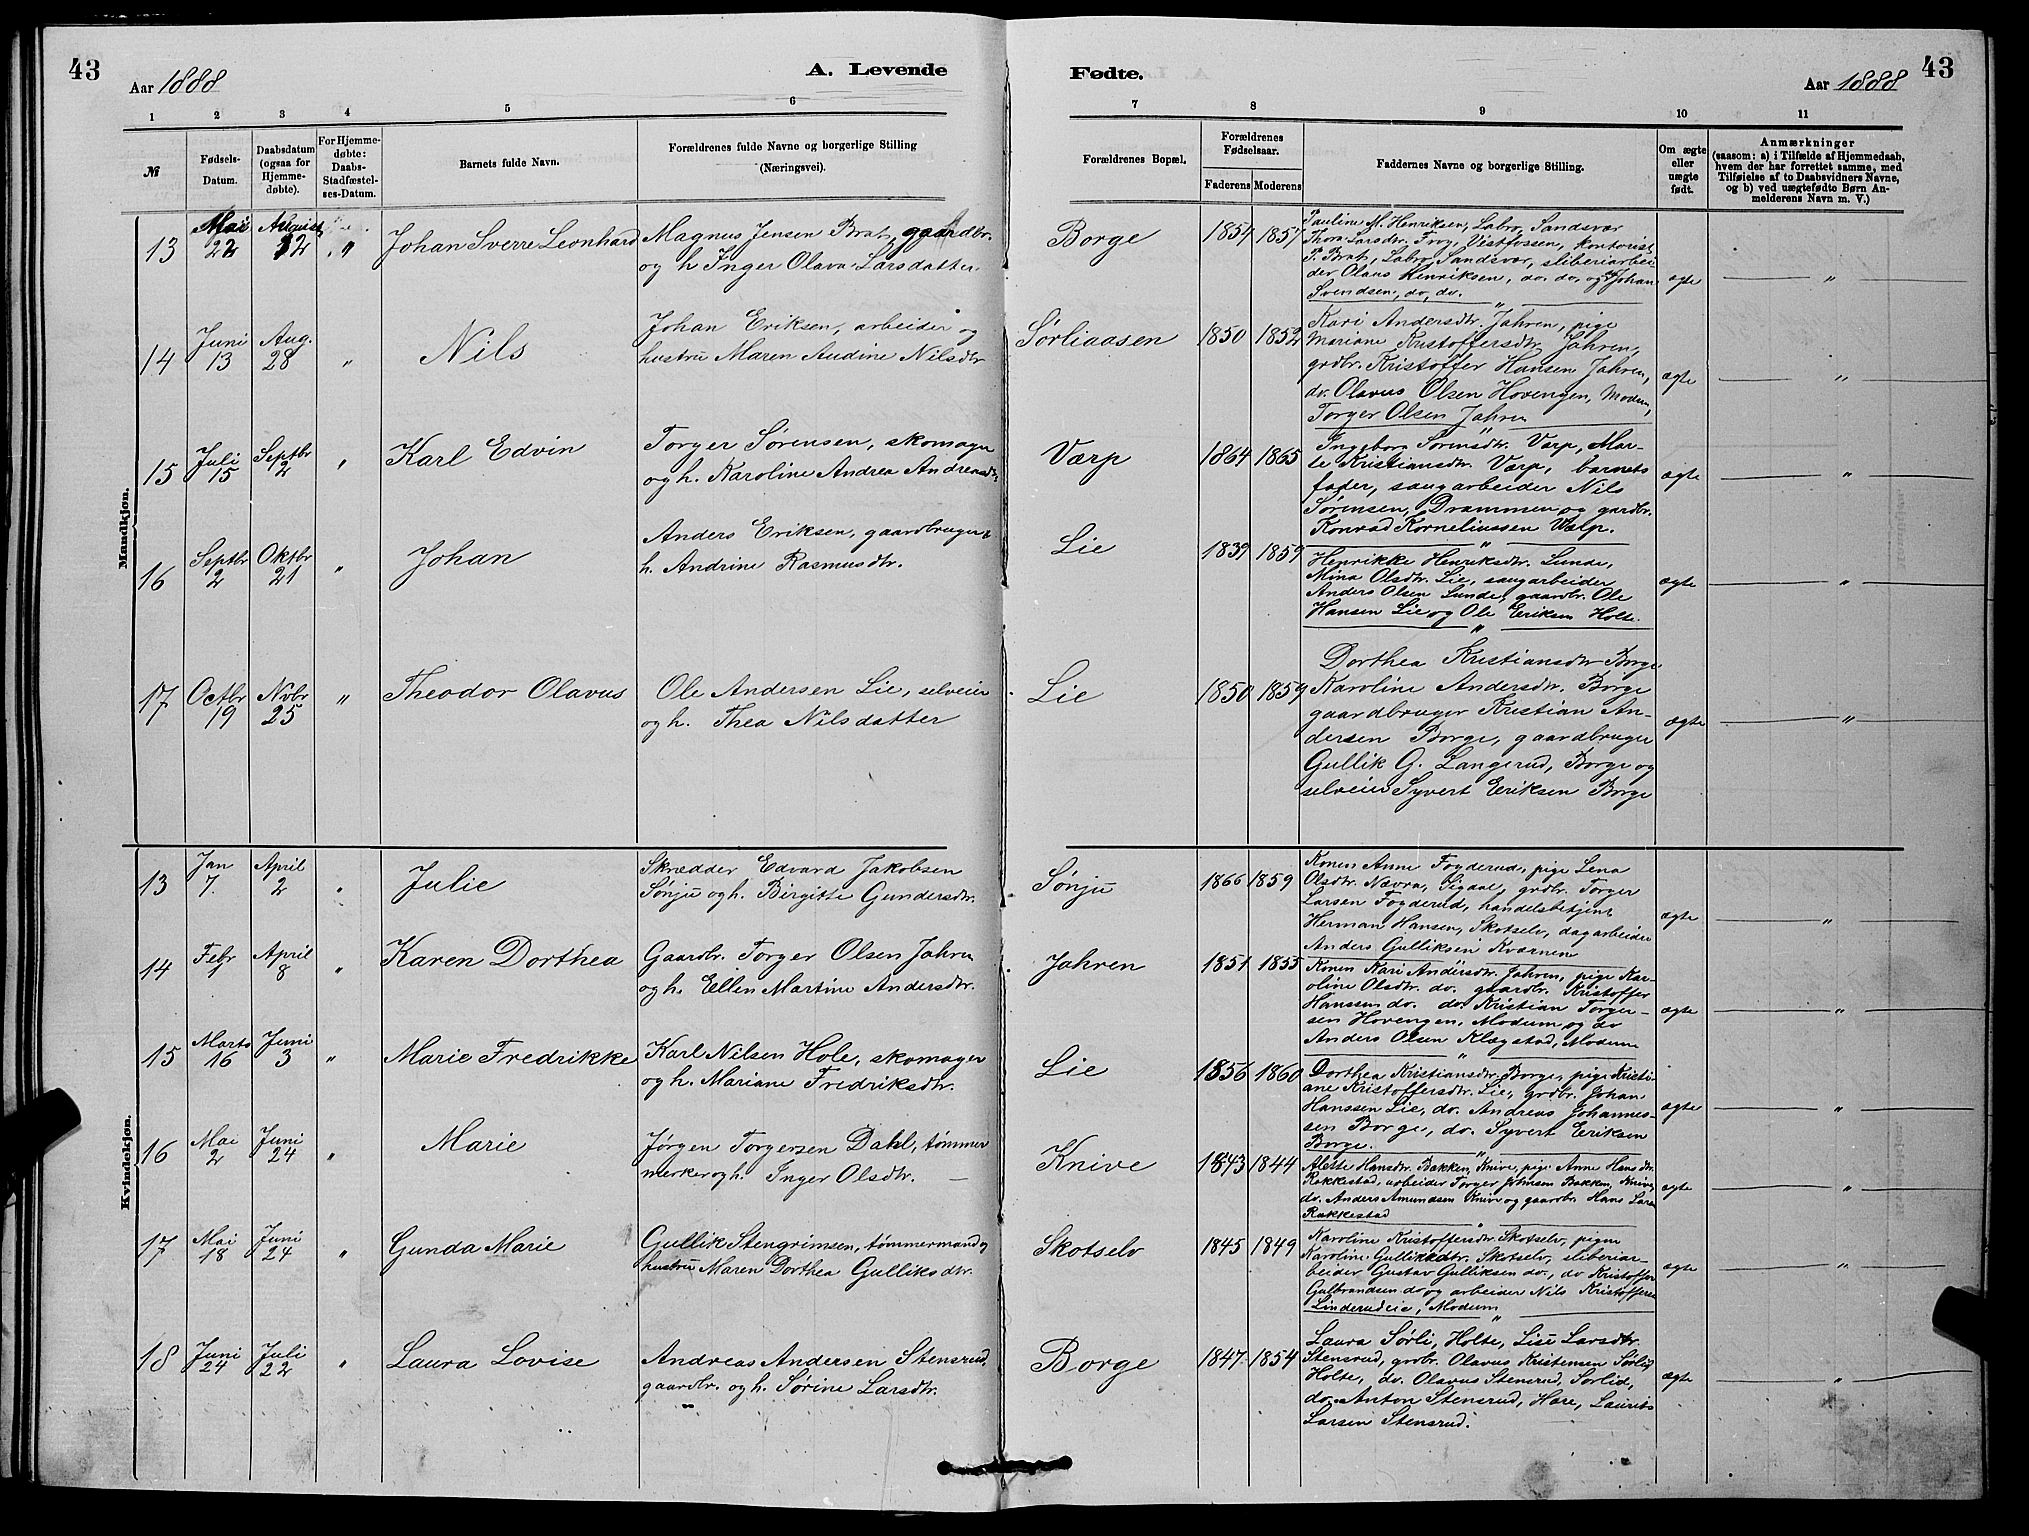 43
Aar 1888
A. Levende
Fødte.
Aar 1888
43
1 2 3 4 5 6 7 8 9 10 11
№
Fødsels-
Datum.
Daabsdatum
(ogsaa for
Hjemme-
døbte).
For Hjemme-
døbte:
Daabs-
Stadfæstel-
ses-Datum.
Barnets fulde Navn.
Forældrenes fulde Navne og borgerlige Stilling
(Næringsvei).
Forældrenes Bopæl.
Forældrenes
Fødselsaar.
Faderens Moderens
Faddernes Navne og borgerlige Stilling.
Om ægte
eller
uægte
født.
Anmærkninger
(saasom: a) i Tilfælde af Hjemmedaab,
hvem der har forrettet samme, med
Tilføielse af to Daabsvidners Navne,
og b) ved uægtefødte Børn An-
melderens Navn m. V.)
Mandkjøn.
13
Mai
22
August
12
"
Johan Sverre Leonhard
Magnus Jensen Brat, gaardbr.
og h. Inger Olava Larsdatter.
Borge
1857 1857
Pauline M. Henriksen, Labro, Sandsvær
Thora Larsdtr. Frog, Vestfossen, kontorist
P. Brat, Labro, Sandsvær, sliberiarbei
der Olaus Henriksen, do. do. og Johan
Svendsen, do, do.
ægte
"
14
Juni
13
Aug.
28
"
Nils
Johan Eriksen, arbeider og
hustru Maren Audine Nilsdtr
Sørliaasen
1850 1852
Kari Andersdtr. Jahren, pige
Mariane Kristoffersdtr. Jahren,
grdbr. Kristoffer Hansen Jahren,
do. Olavus Olsen Hovengen, Modum,
Torger Olsen Jahren
ægte
"
15
Juli
15
Septbr
2
"
Karl Edvin
Torger Sørensen, skomager
og h. Karoline Andrea Andreasdtr.
Værp
1864 1865
Ingeborg Sørensdtr. Værp, Mar-
te Kristiansdtr. Værp, barnets
fader, saugarbeider Nils
Sørensen, Drammen og gaardbr.
Konrad Korneliussen Værp.
ægte
"
16
Septbr
2
Oktbr
21
"
Johan
Anders Eriksen, gaardbruger &
h. Andrine Rasmusdtr.
Lie
1839 1859
Henrikke Henriksdtr. Lunde,
Mina Olsdtr. Lie, saugarbeider
Anders Olsen Lunde, gaardbr. Ole
Hansen Lie og Ole Eriksen Holte.
ægte
"
17
Octbr
19
Nvbr
25
"
Theodor Olavus
Ole Andersen Lie, selveier
og h. Thea Nilsdatter
Lie
1850 1859
Dorthea Kristiansdtr Borge
Karoline Andersdtr. Borge
gaardbruger Kristian An-
dersen Borge, gaardbruger
Gullik G. Langerud, Borge og
selveier Syvert Eriksen Borge
ægte
"
Kvindekjøn.
13
Jan
7.
April
2
"
Julie
Skrædder Edvard Jakobsen
Sønju og h. Birgitte Gundersdtr.
Sønju
1866 1859
Konen Anne Foyderud, pige Lena
Olsdtr. Nævra, Sigdal, grdbr. Torger
Larsen Foyderud, handelsbetjent
Herman Hansen, Skotselv, dagarbeider
Anders Gulliksen Kværnen
ægte
"
14
Febr
1
April
8
"
Karen Dorthea
Gaardbr. Torger Olsen Jahren
og h. Ellen Martine Andersdtr.
Jahren
1851 1855
Konen Kari Andersdtr. Jahren, pige Kar-
oline Olsdtr. do. gaardbr. Kristoffer
Hanssen do. do. Kristian Torger-
sen Hovengen, Modum og do
Anders Olsen Klægstad, Modum
ægte
"
15
Marts
16
Juni
3
"
Marie Fredrikke
Karl Nilsen Hole, skomager
og h. Mariane Fredriksdtr.
Lie
1856 1860
Dorthea Kristiansdtr. Borge, pige Kristi-
ane Kristoffersdtr. Lie, grdbr. Johan
Hanssen Lie, do. Andreas Johannes-
sen Borge, do. Syvert Eriksen
Borge.
ægte
"
16
Mai
2
Juni
24
"
Marie
Jørgen Torgersen Dahl, tømmer
merker og h. Inger Olsdtr.
Knive
1843 1844
Alette Hansdtr. Bakken, Knive, pige Anne Hansdtr.
Rakkestad, arbeider Torger Johnsen Bakken, Knive,
do. Anders Amundsen Knive og gaardbr. Hans Larsen
Rakkestad
ægte
"
17
Mai
18
Juni
24
"
Gunda Marie
Gullik Stengrimsen, tømmermand og
hustru Maren Dorthea Gulliksdtr.
Skotselv
1845 1849
Karoline Kristoffersdtr. Skotselv, pigen
Karoline Gulliksdtr. Skotselv, sliberiar-
beider Gustav Gulliksen do., do Kristoffer
Gulbrandsen do og arbeider Nils Kristoffersen
Linderudeie, Modum
ægte
"
18
Juni
24
Juli
22
"
Laura Lovise
Andreas Andersen Stensrud,
gaardbr. og h. Sørine Larsdtr.
Borge
1847 1854
Laura Sørli, Holte, Lise Larsdtr.
Stensrud, grdbr. Olavus Kristensen Sørli,
Holte, do. Olavus Stensrud, Sørlid,
do. Anton Stensrud, Hære, Laurits
Larsen Stensrud.
ægte
"